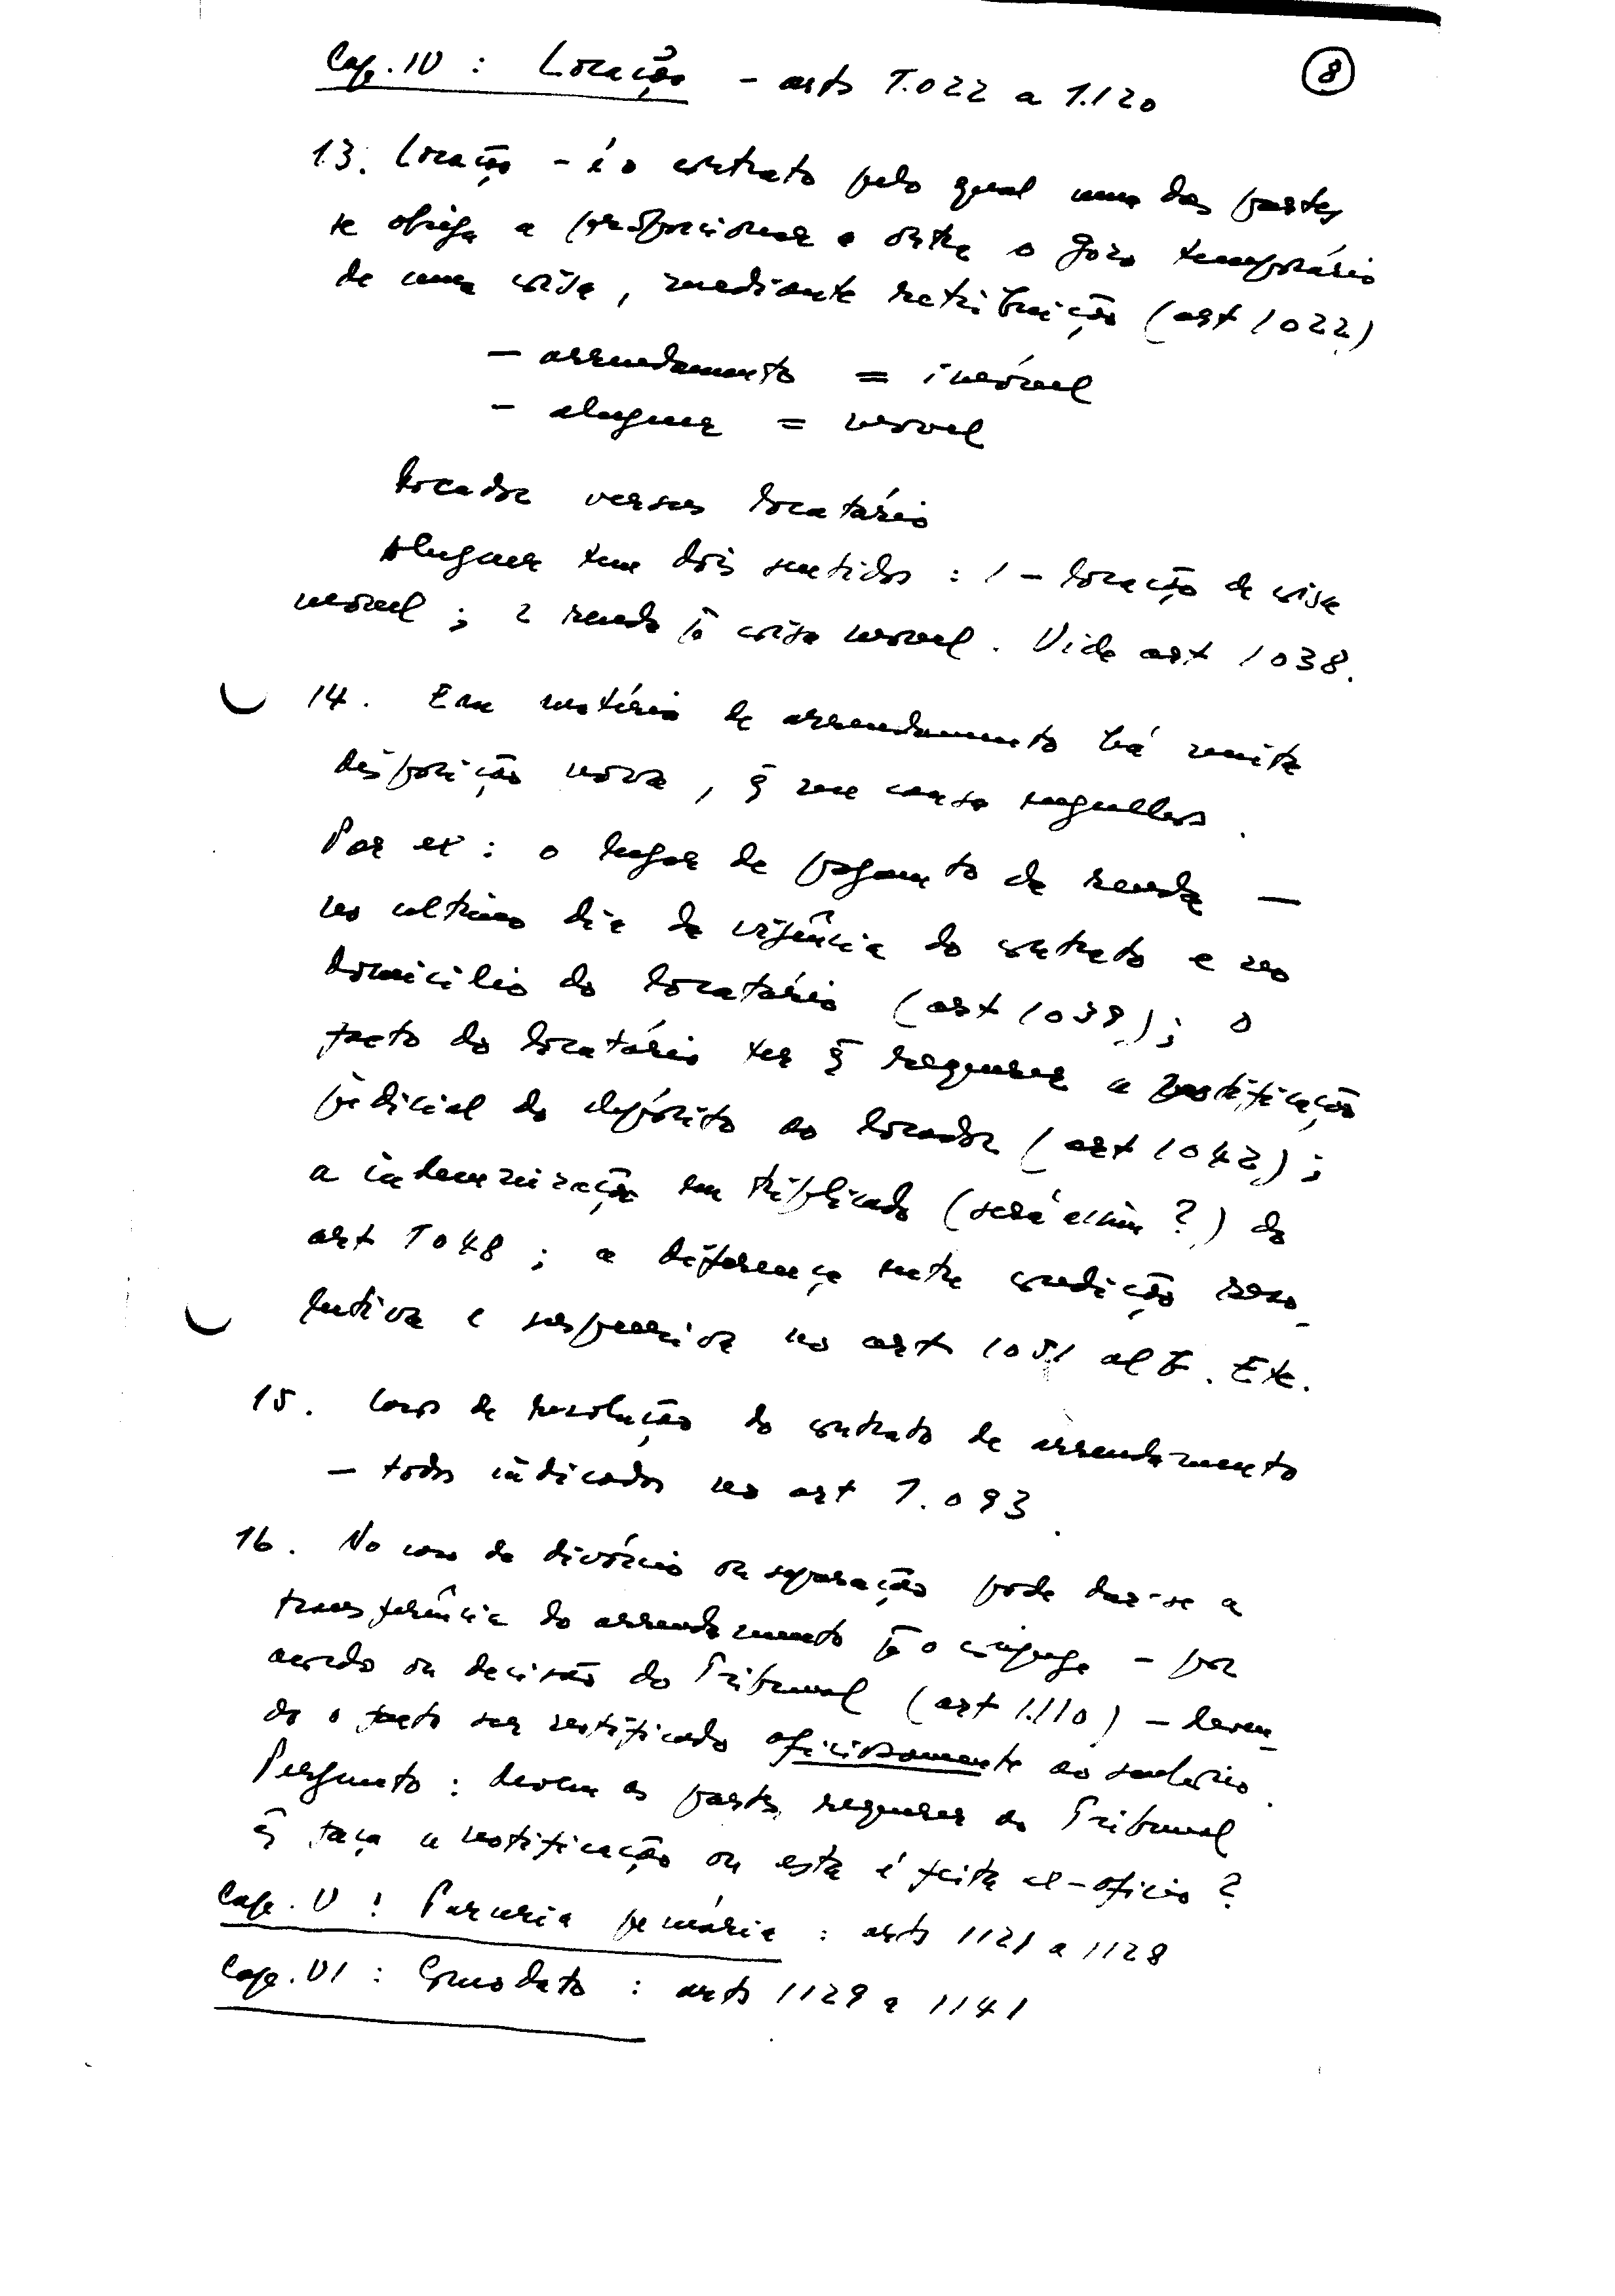 Cap. IV : Locação - arts 1.022 a 1.120
8
13. Locação - é o contrato pelo qual uma das partes
se obriga a proporcionar a outra o gozo temporário
de uma coisa, mediante retribuição (art 1022)
- arrendamento = imóvel
- aluguer = movel
Locador versus locatário
Aluguer tem dois sentidos : 1 - locação de coisa
movel ; 2 renda p̄ coisa movel. Vide art 1038.
14. Em matéria de arrendamento há muita
disposição nova, q̄ me causa engulhos.
Por ex : o lugar de pagamento da renda —
no ultimo dia da vigência do contrato e no
domicilio do locatário (art 1039); o
facto do locatário ter q̄ requerer a notificação
judicial do depósito ao locador (art 1042);
a indemnização em triplicado (será assim ?) do
art 1048 ; a diferença entre condição reso-
lutiva e suspensiva no art 1051 al b. Etc.
15. Casos de resolução do contrato de arrendamento
- todos indicados no art 1.093.
16. No caso de divórcio ou separação pode dar-se a
transferência do arrendamento p̄ o cônjuge - por
acordo ou decisão do Tribunal (art 1.110) - deven-
do o facto ser notificado oficiosamente ao senhorio.
Pergunto : devem as partes requerer ao Tribunal
q̄ faça a notificação ou esta é feita ex-oficio ?
Cap. V : Parceria pecuária : arts 1121 a 1128
Cap. VI : Comodato : arts 1129 a 1141